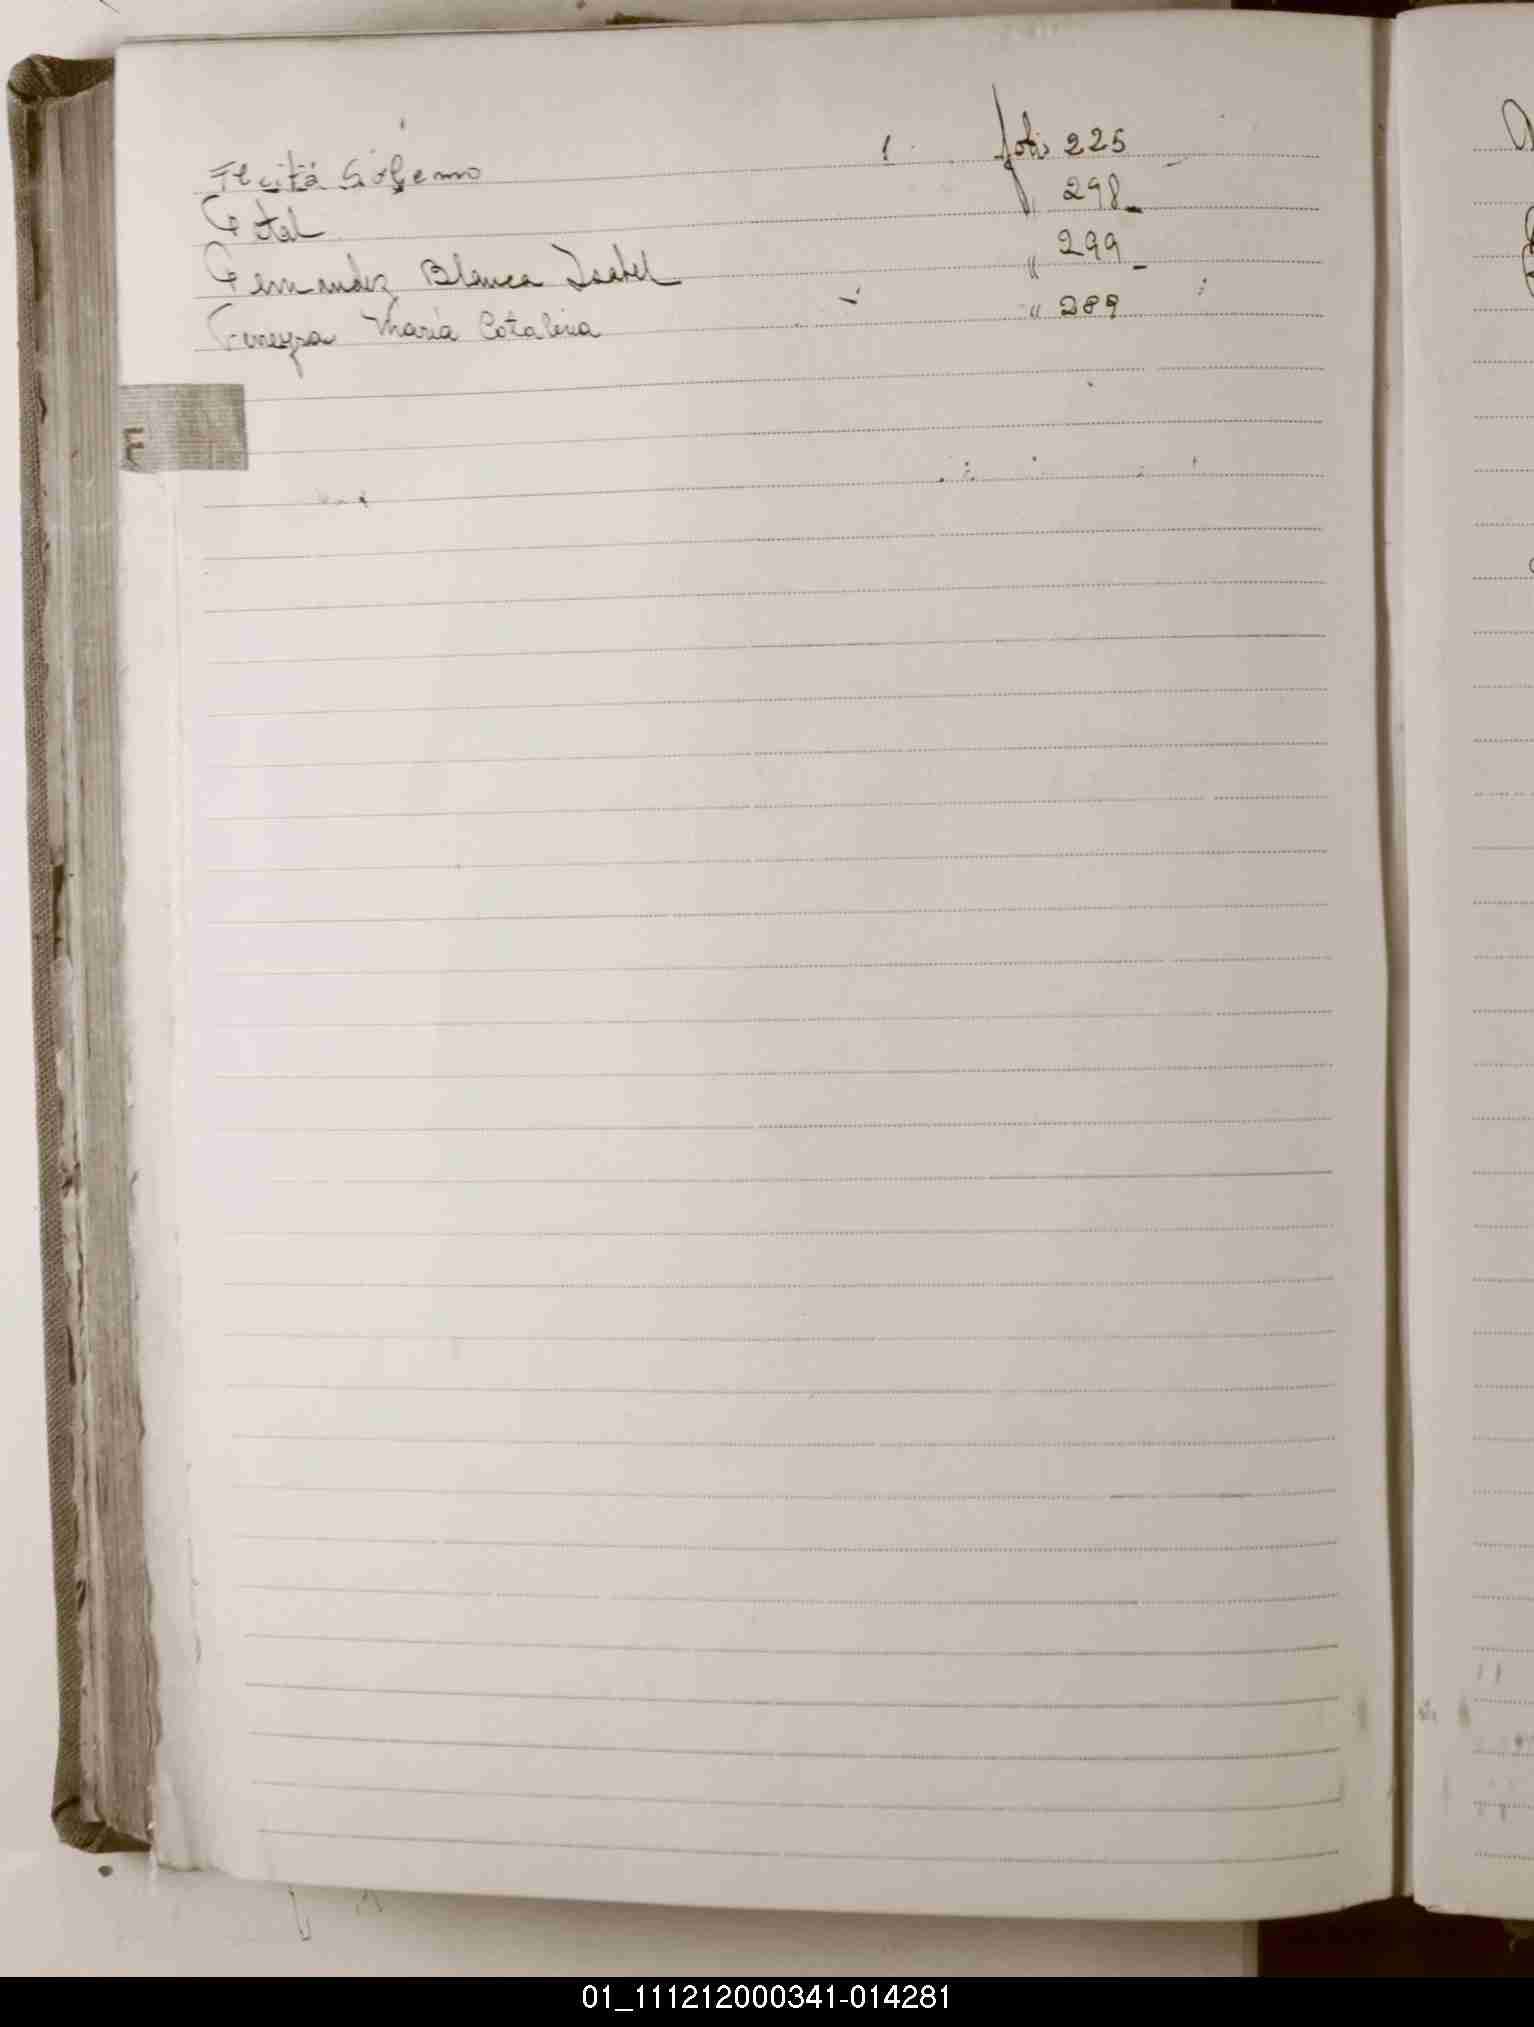 Felcitá Gólgemo 1 folio 225
Fetal " 298
Fernandez Blanca Isabel " 299
Fereyra Maria Catalina " 289
F
01_111212000341-014281